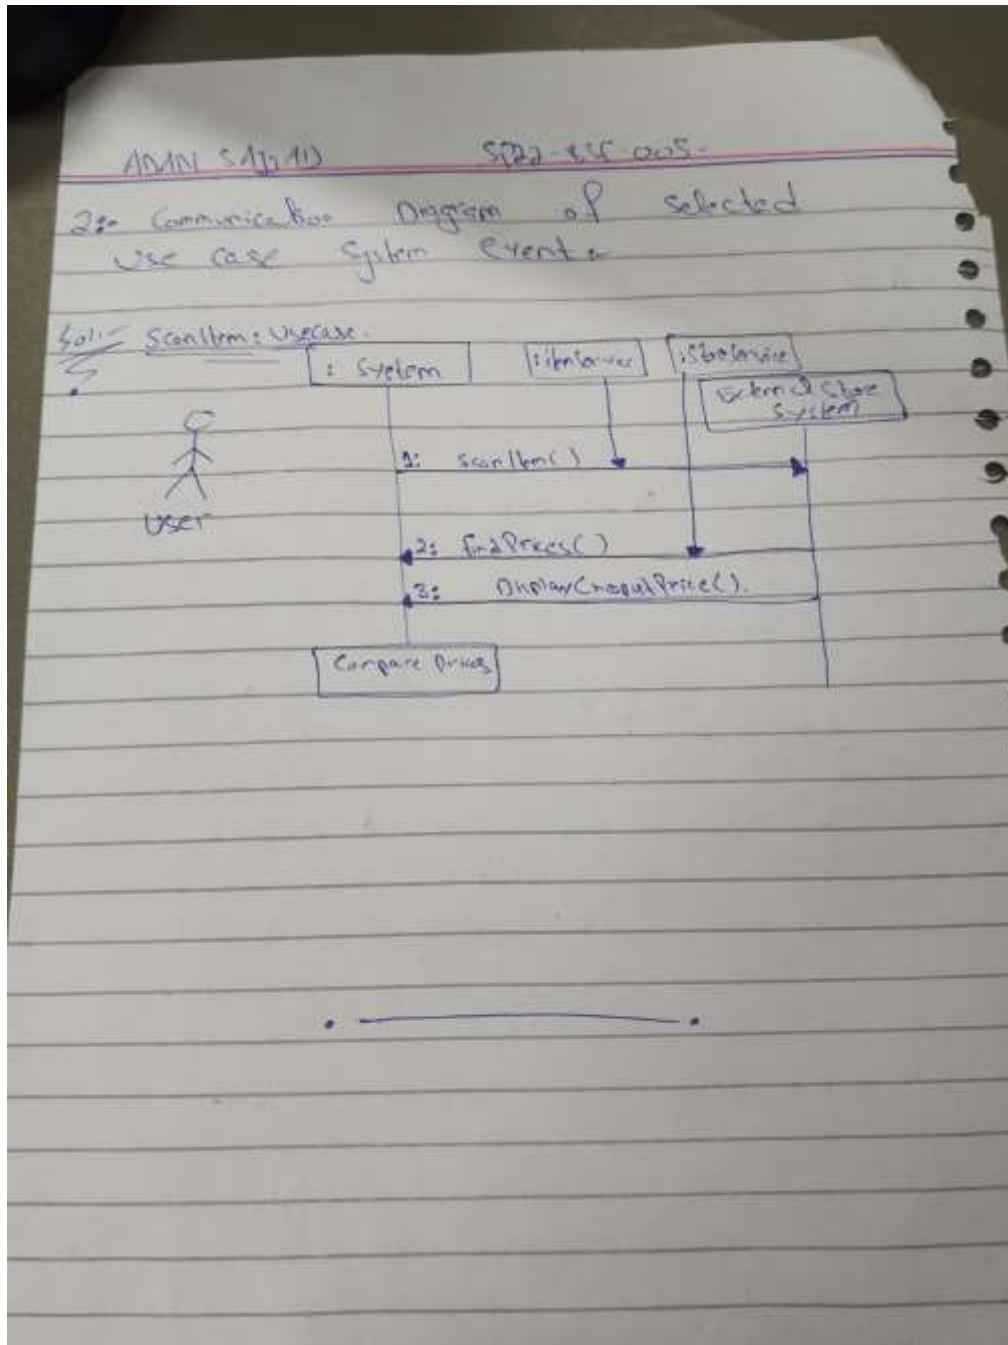 2:- Communication Diagram of selected
use case System Event:-
Sol:- ScanItem: Usecase.
: System
:itemService
:StoreService
External Store
System
User
1: ScanItem()
2: findPrices()
3: DisplayCheapestPrice().
Compare Prices